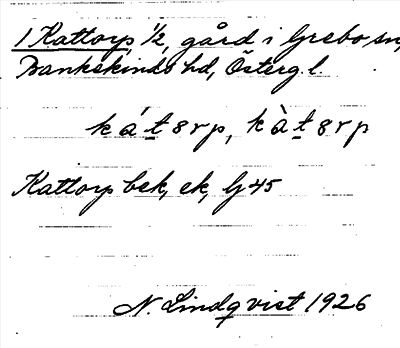 1 Kattorp, 1/2, gård i Grebo sn,
Bankekinds hd, Österg. l.
ká́t8rp, kàt8rp
Kattorp bek, ek, G 45
N. Lindqvist 1926